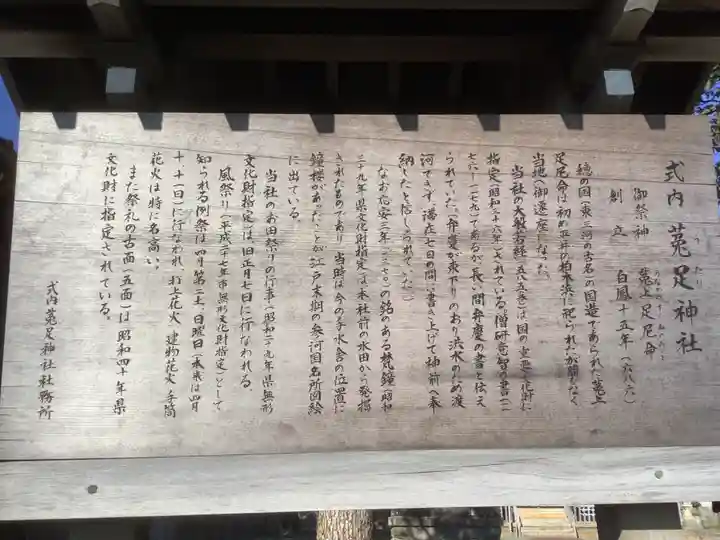 式内 菟足神社
うたり
御祭神 菟上足尼命
創立 白鳳十五年(六八六)
穂の国(東三河の古名)の国造であられた菟上
足尼命は初め平井の柏木浜に祀られたが間もなく
当地に御遷座になった。
当社の大般若経(五八五巻)は国の重要文化財に
指定(昭和三十六年)されている。僧研意智の書(一一
七六〜一一七九)であるが、長い間弁慶の書と伝え
られていた。(弁慶が東下りのおり洪水のため渡
河できず、滞在七日の間に書き上げて神前に奉
納したと信じられていた)
なお応安三年(一三七〇)の銘のある梵鐘(昭和
三十九年県文化財指定)は本社前の水田から発掘
されたものであり、当時は今の手水舎の位置に
鐘楼があったことが江戸末期の参河国名所図絵
に出ている。
当社のお田祭りの行事(昭和二十九年県無形
文化財指定)は旧正月七日に行なわれる。
風祭り(平成二十七年市無形文化財指定)として
知られる例祭は四月第二土、日曜日(本来は四月
十、十一日)に行なわれ、打上花火、建物花火、手筒
花火は特に名高い。
また祭礼の古面(五面)は昭和四十年県
文化財に指定されている。
式内菟足神社社務所